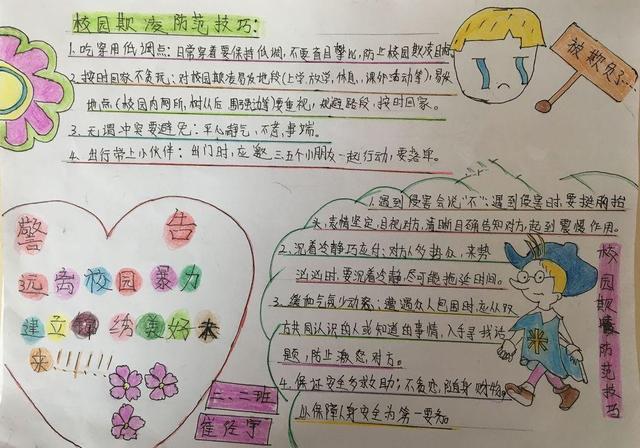 校园欺凌防范技巧：
1、吃穿用低调点：日常穿着要保持低调，不要盲目攀比，防止校园欺凌目标。
2、按时回家不贪玩：对校园欺凌易发地段（上学、放学、休息、课外活动等），易发
地点（校园内厕所、树丛后、围强边等）要重视，规避路段，按时回家。
3、无谓冲突要避免：平心静气，不惹事端。
4、出行带上小伙伴：出门时，应邀三五个小朋友一起行动，要落单。
被欺负了…
警告
远离校园暴力
建立缤纷美好未
来!!!!!!
二、二班
崔经宇
1、遇到侵害会说“不”：遇到侵害时，要挺胸抬
头，表情坚定，目视对方，清晰目确告知对方，起到震慑作用。
2、沉着冷静巧应付：对方人多势众，来势
汹汹时，要沉着冷静，尽可能拖延时间。
3、缓和气氛少动怒：遭遇众人包围时，应从双
方共同认识的人或知道的事情，入手寻找话
题，防止激怒对方。
4、保证安全多救助：不贪恋随身财物。
以保障人身安全为第一要务
校园欺凌防范技巧